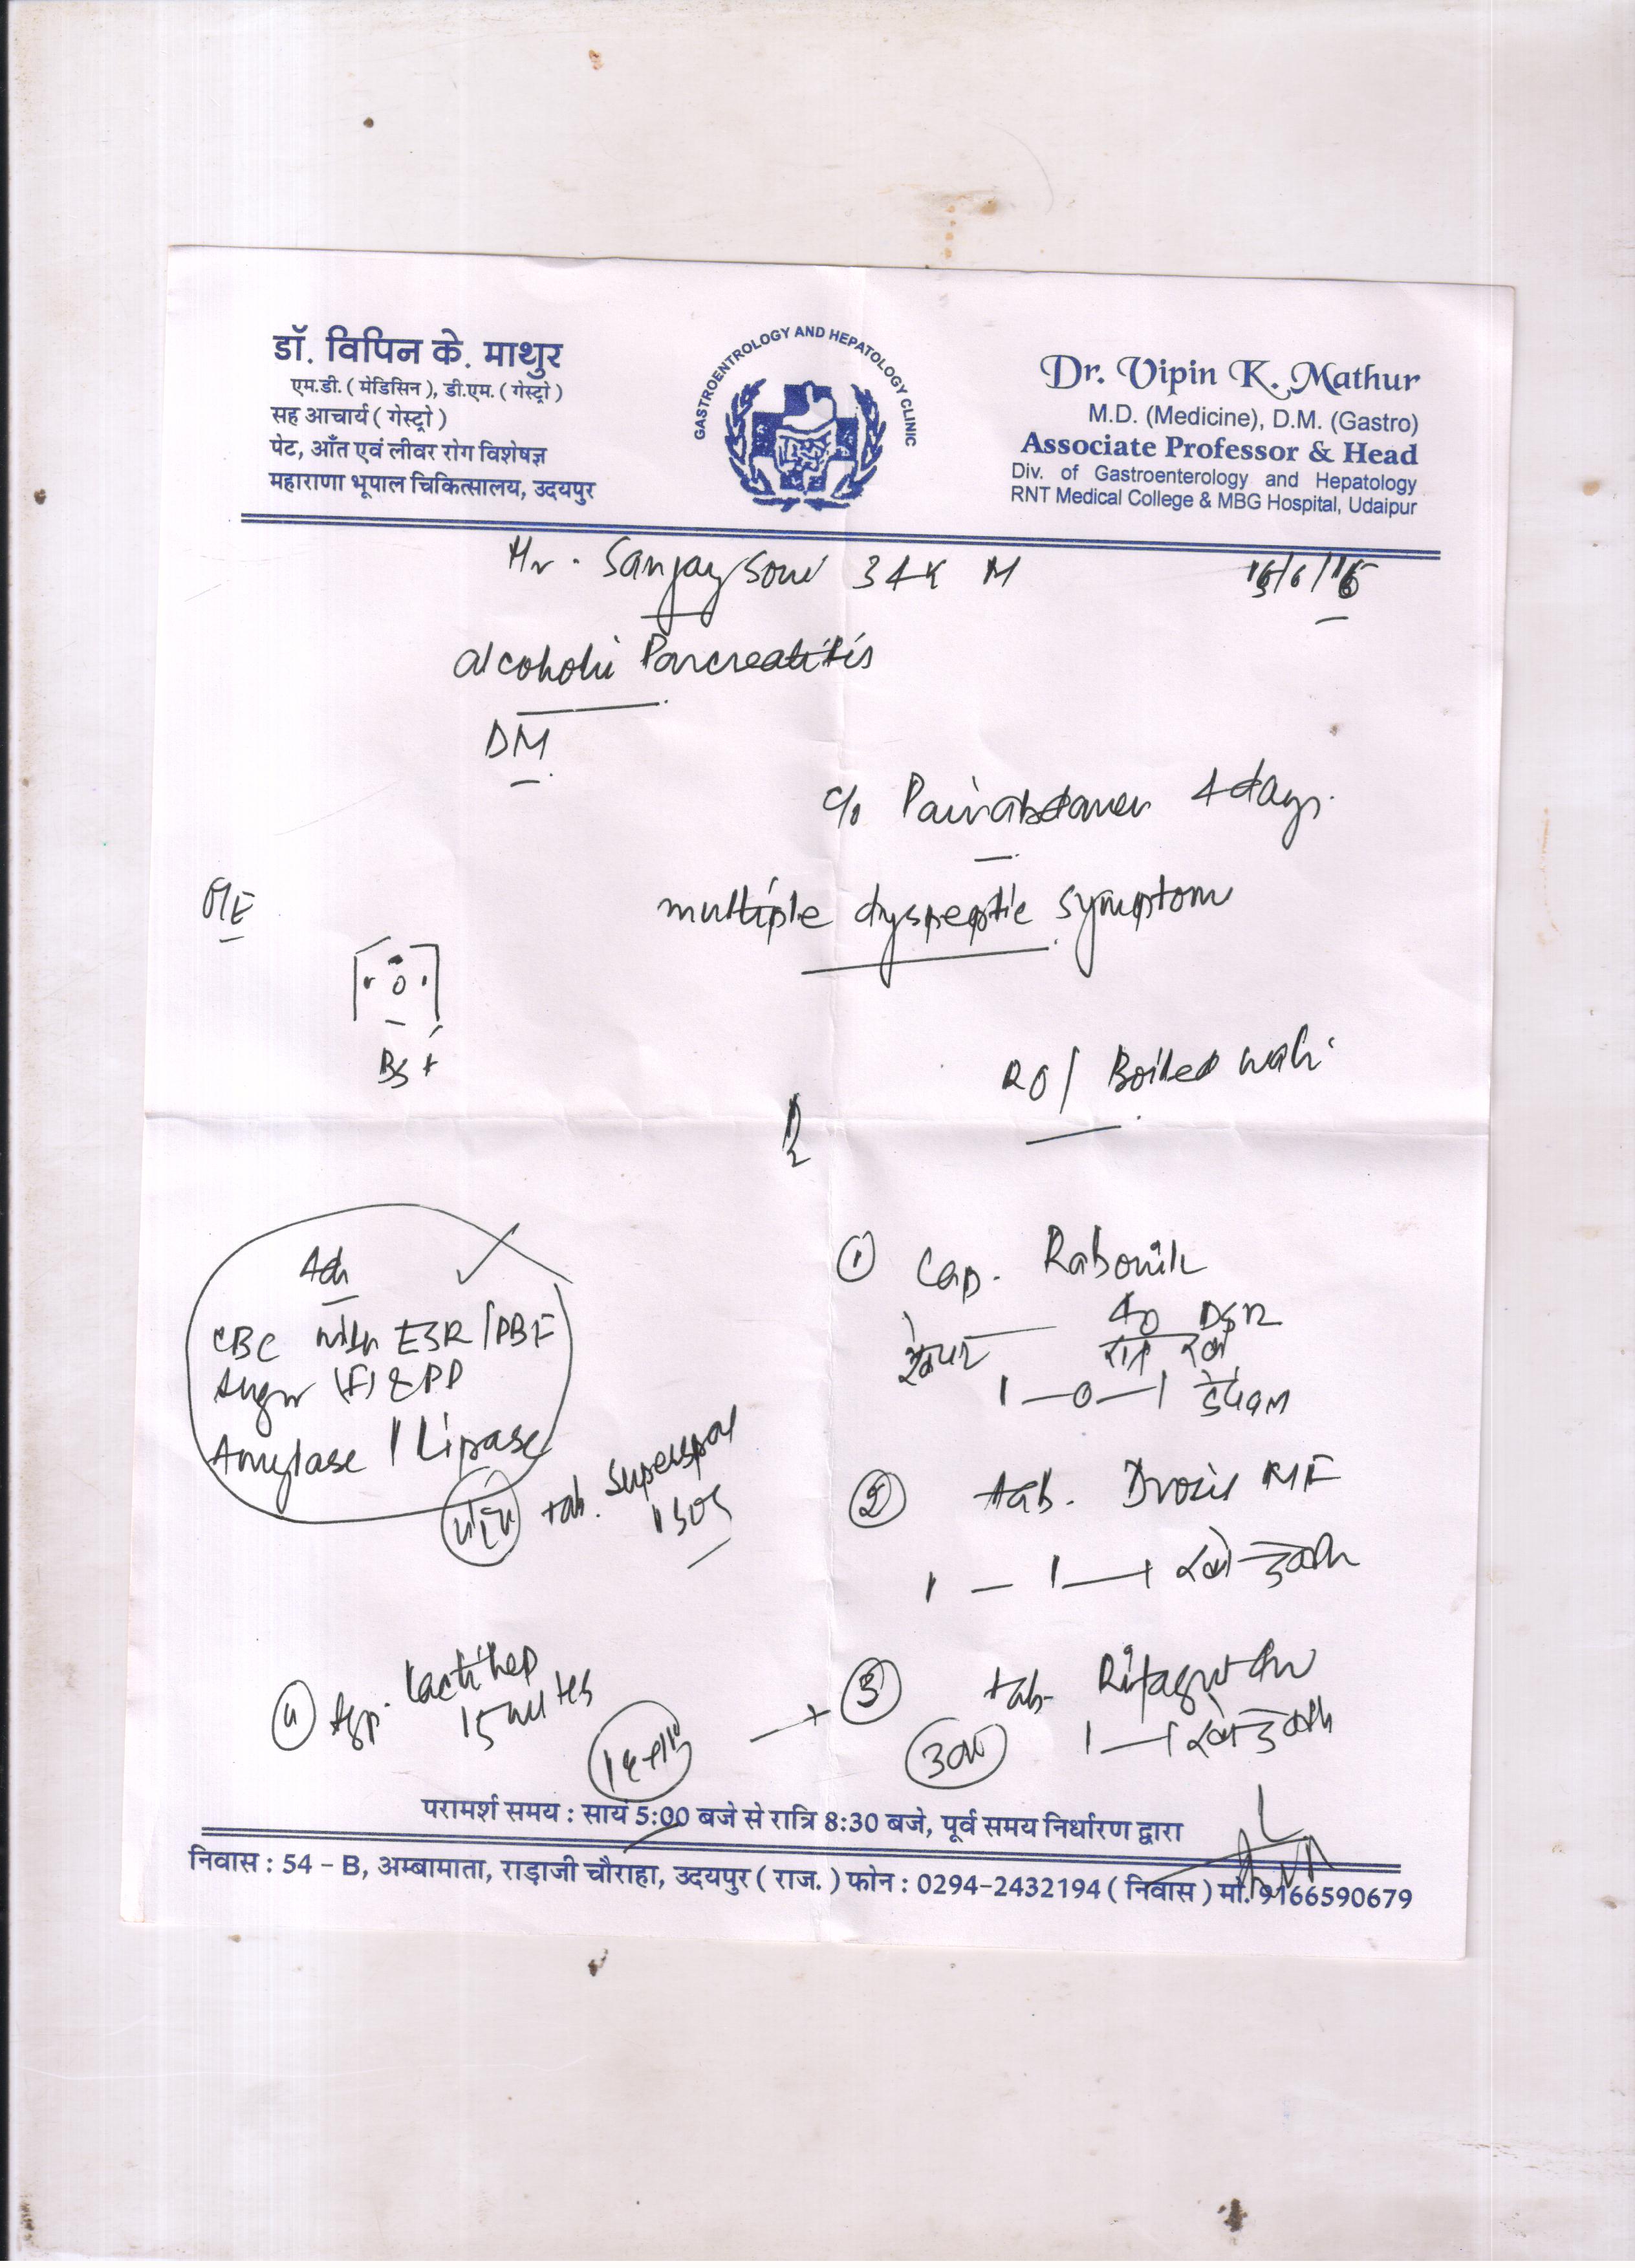 डॉ. विपिन के. माथुर
एम.डी. ( मेडिसिन ), डी.एम. ( गेस्ट्रो )
सह आचार्य ( गेस्ट्रो )
पेट, आँत एवं लीवर रोग विशेषज्ञ
महाराणा भूपाल चिकित्सालय, उदयपुर
GASTROENTROLOGY AND HEPATOLOGY CLINIC
Dr. Vipin K. Mathur
M.D. (Medicine), D.M. (Gastro)
Associate Professor & Head
Div. of Gastroenterology and Hepatology
RNT Medical College & MBG Hospital, Udaipur
Mr. Sanjay Soni 34 M
alcoholic Pancreatitis
DM
c/o Pain abdomen 4 days.
multiple dyspeptic symptom
O/E
BS +
RO / Boiled
CBC with ESR / PBF
Sugar (F) & PP
Amylase / Lipase
tab. Superspas
1 SOS
① Cap. Rabonik
40 DSR
1 — 0 — 1
② tab.
1 — 1 — 1
③ tab.
④ Syp. Lactihep
परामर्श समय : सायं 5:00 बजे से रात्रि 8:30 बजे, पूर्व समय निर्धारण द्वारा
निवास : 54 - B, अम्बामाता, राड़ाजी चौराहा, उदयपुर ( राज. ) फोन : 0294-2432194 ( निवास ) मो. 9166590679